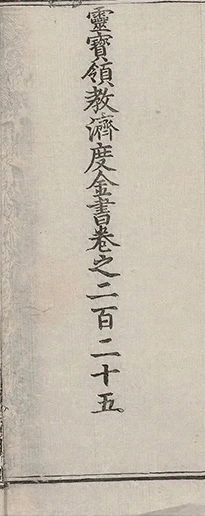 靈寳領教濟度金書卷之二百二十五